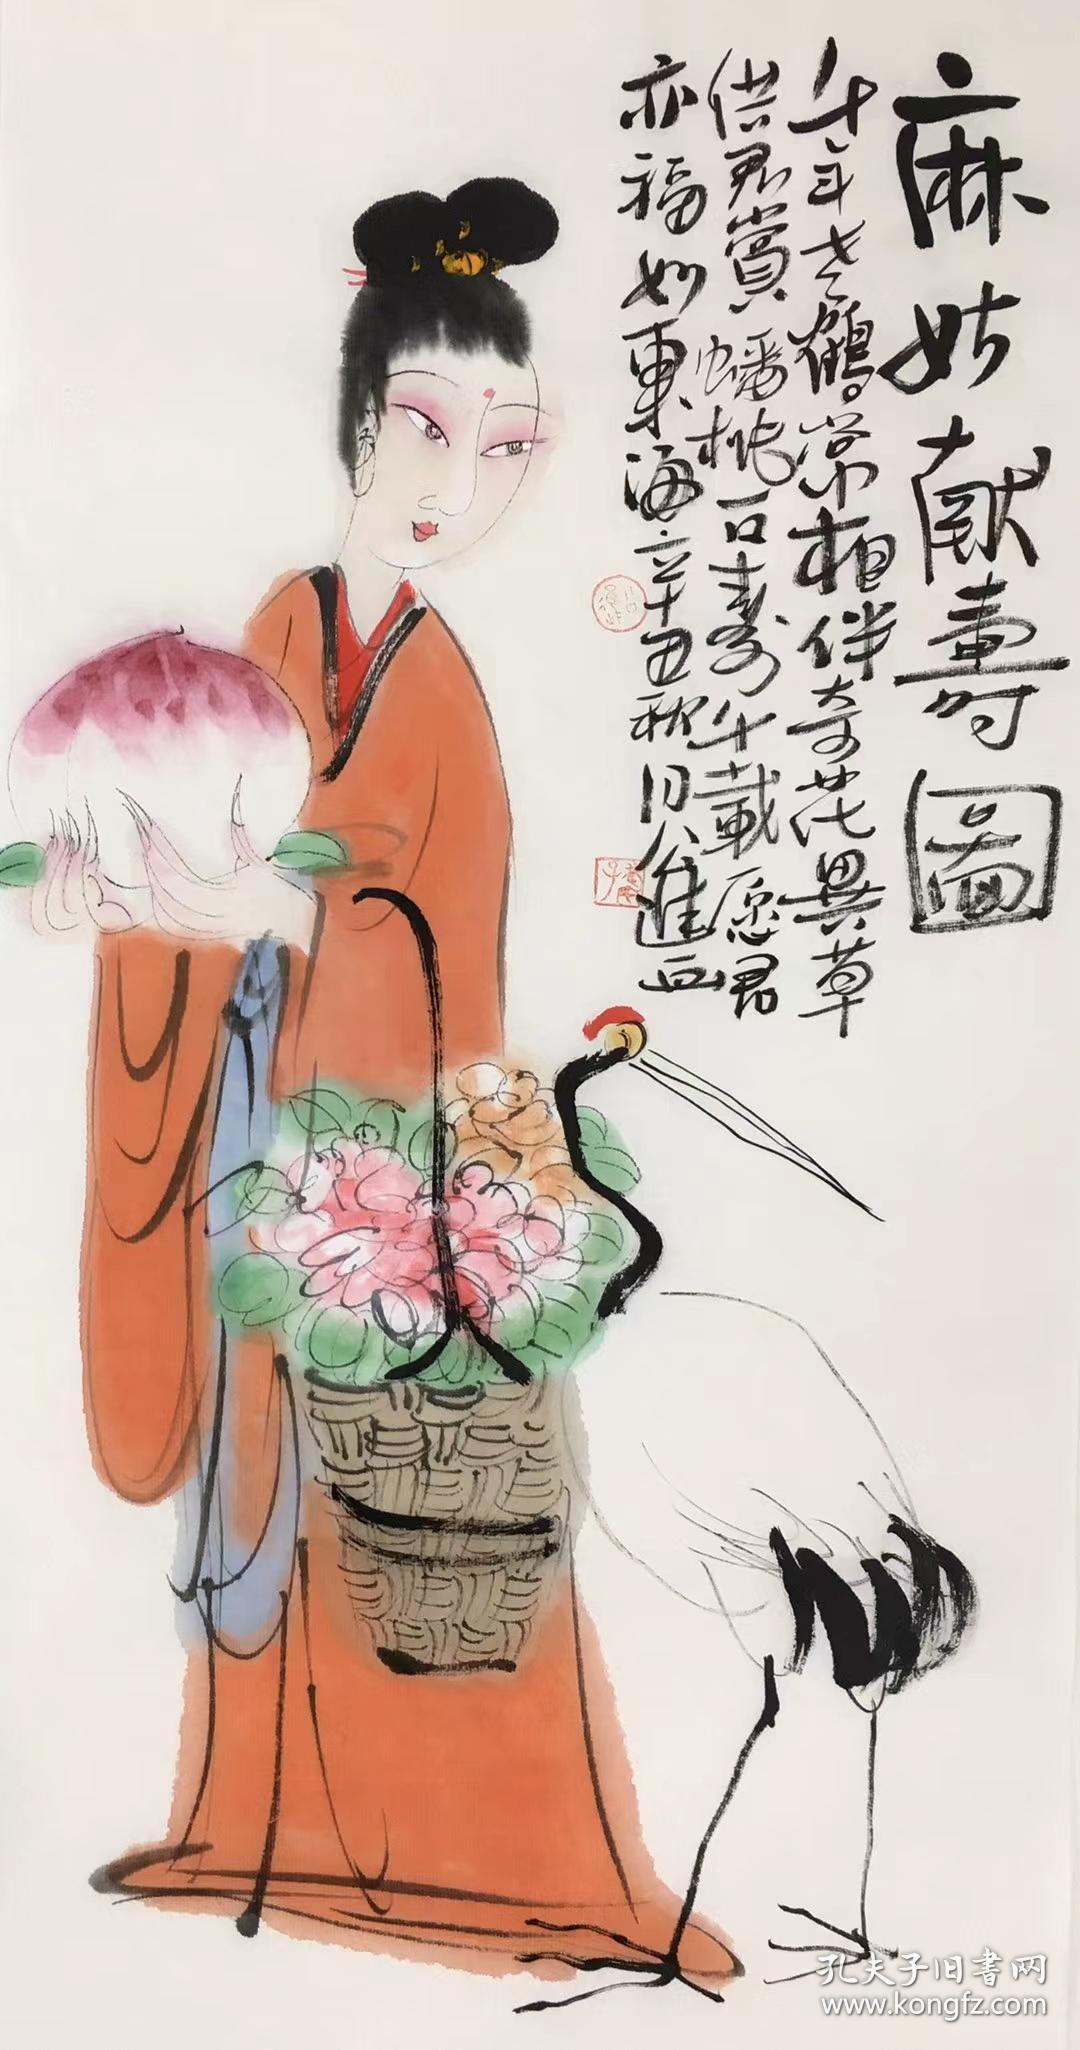 麻姑献壽图
千年老鶴常相伴奇花異草
供君賞蟠桃一口壽千載愿君
亦福如東海辛丑秋月八進画
孔夫子旧書网
www.kongfz.com